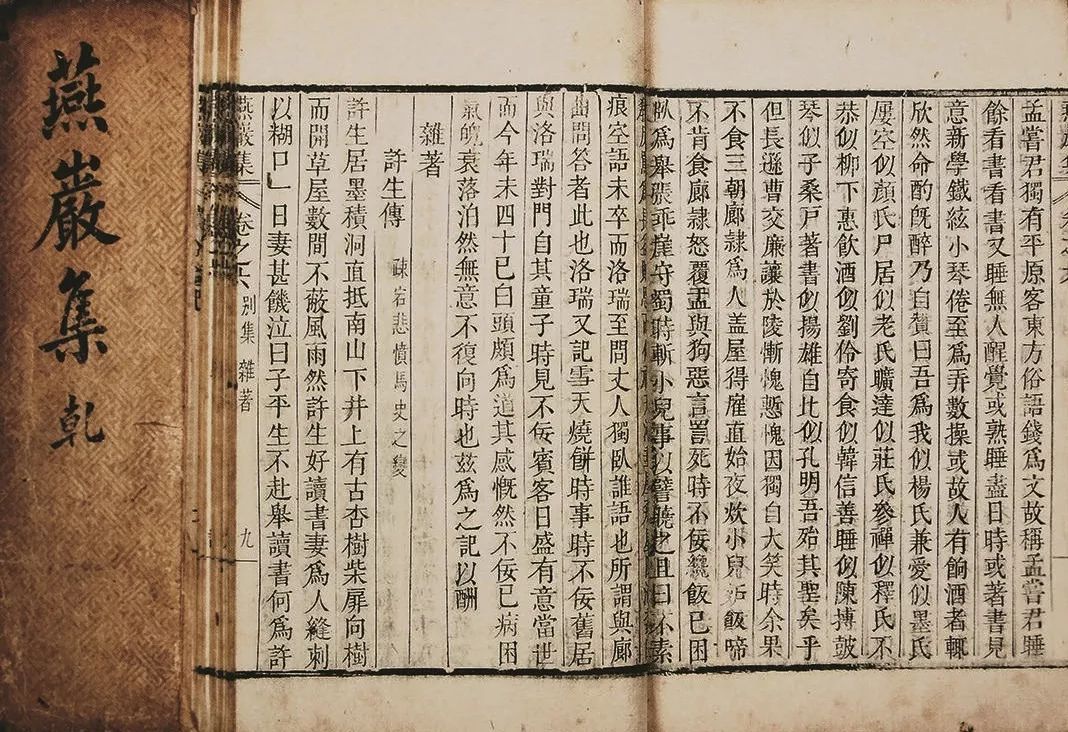 孟嘗君獨有平原客東方俗語錢爲文故稱孟嘗君睡
餘看書看書又睡無人醒覺或熟睡盡日時或著書見
意新學鐵絃小琴倦至爲弄數操或故人有餉酒者輒
欣然命酌旣醉乃自贊曰吾爲我似楊氏兼愛似墨氏
屢空似顔氏尸居似老氏曠達似莊氏參禪似釋氏不
恭似柳下惠飮酒似劉伶寄食似韓信善睡似陳摶鼓
琴似子桑戶著書似揚雄自比似孔明吾殆其聖矣乎
但長遜曹交廉讓於陵慚愧慙愧因獨自大笑時余果
不食三朝廊隷爲人盖屋得雇直始夜炊小兒妬飯啼
不肯食廊隷怒覆盂與狗惡言詈死時不佞纔飯已困
臥爲舉張乖崖守蜀時斬小兒事以譬曉之且曰不素
痕空語未卒而洛瑞至問丈人獨臥誰語也所謂與廊
曲問答者此也洛瑞又記雪天燒餠時事時不佞舊居
與洛瑞對門自其童子時見不佞賓客日盛有意當世
而今年未四十已白頭頗爲道其感慨然不佞已病困
氣魄衰落泊然無意不復向時也玆爲之記以酬
雜著
許生傳 疎宕悲憤馬史之變
許生居墨積洞直抵南山下井上有古杏樹柴扉向樹
而開草屋數間不蔽風雨然許生好讀書妻爲人縫刺
以糊口」日妻甚饑泣曰子平生不赴舉讀書何爲許
燕巖集 卷之六 別集 雜著 九
燕巖集 乾